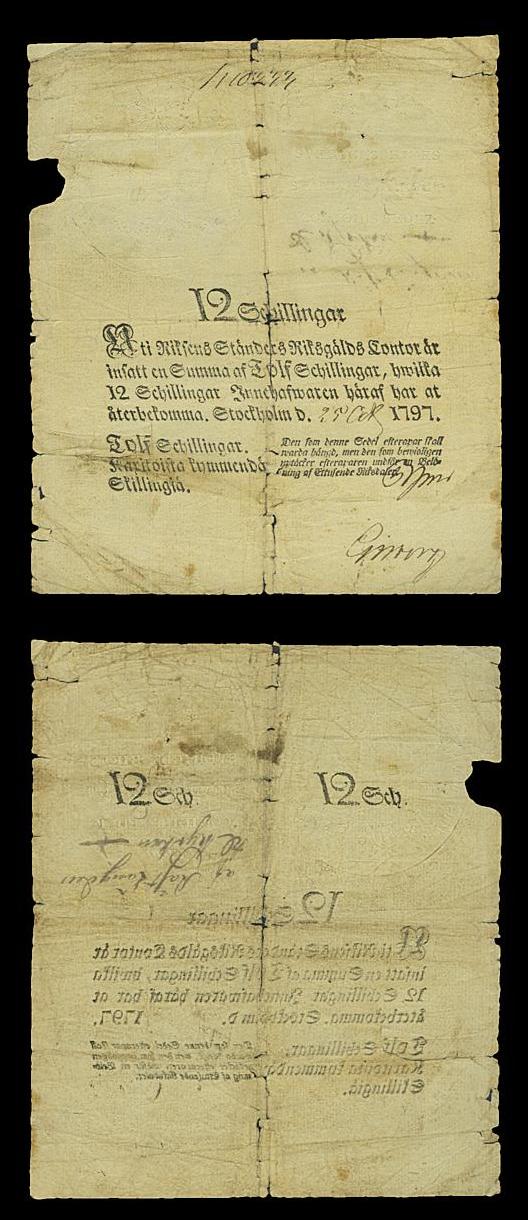 12 Schillingar
Uti Riksens Ständers Riksgälds Contor är
insatt en Summa af Tolf Schillingar, hwilka
12 Schillingar Innehafwaren häraf har at
återbekomma. Stockholm d. 25 Oct 1797.
Tolf Schillingar.
Kaxitoista kymmendä
Skillingiä.
Den som denne Sedel efterapar skall
warda hängd, men den som bewisligen
uptäcker efteraparen undfår en Belö-
ning af Ettusende Riksdaler.
12 Sch. 12 Sch.